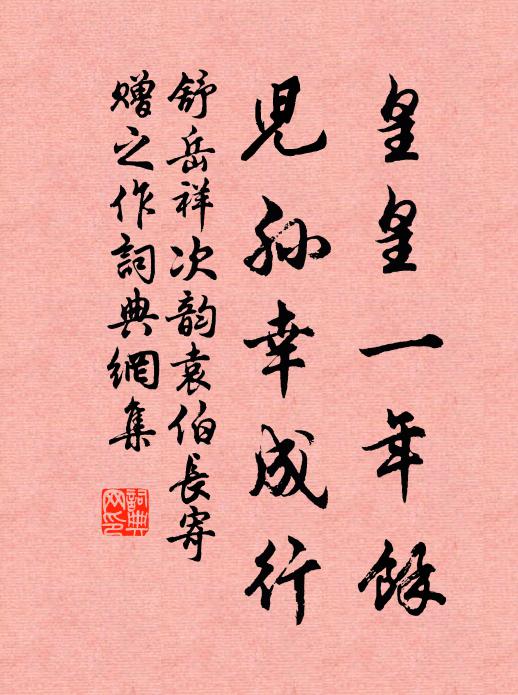 皇皇一年餘
兒孫幸成行
舒岳祥次韵袁伯長寄
贈之作詞典網集
詞典
网印